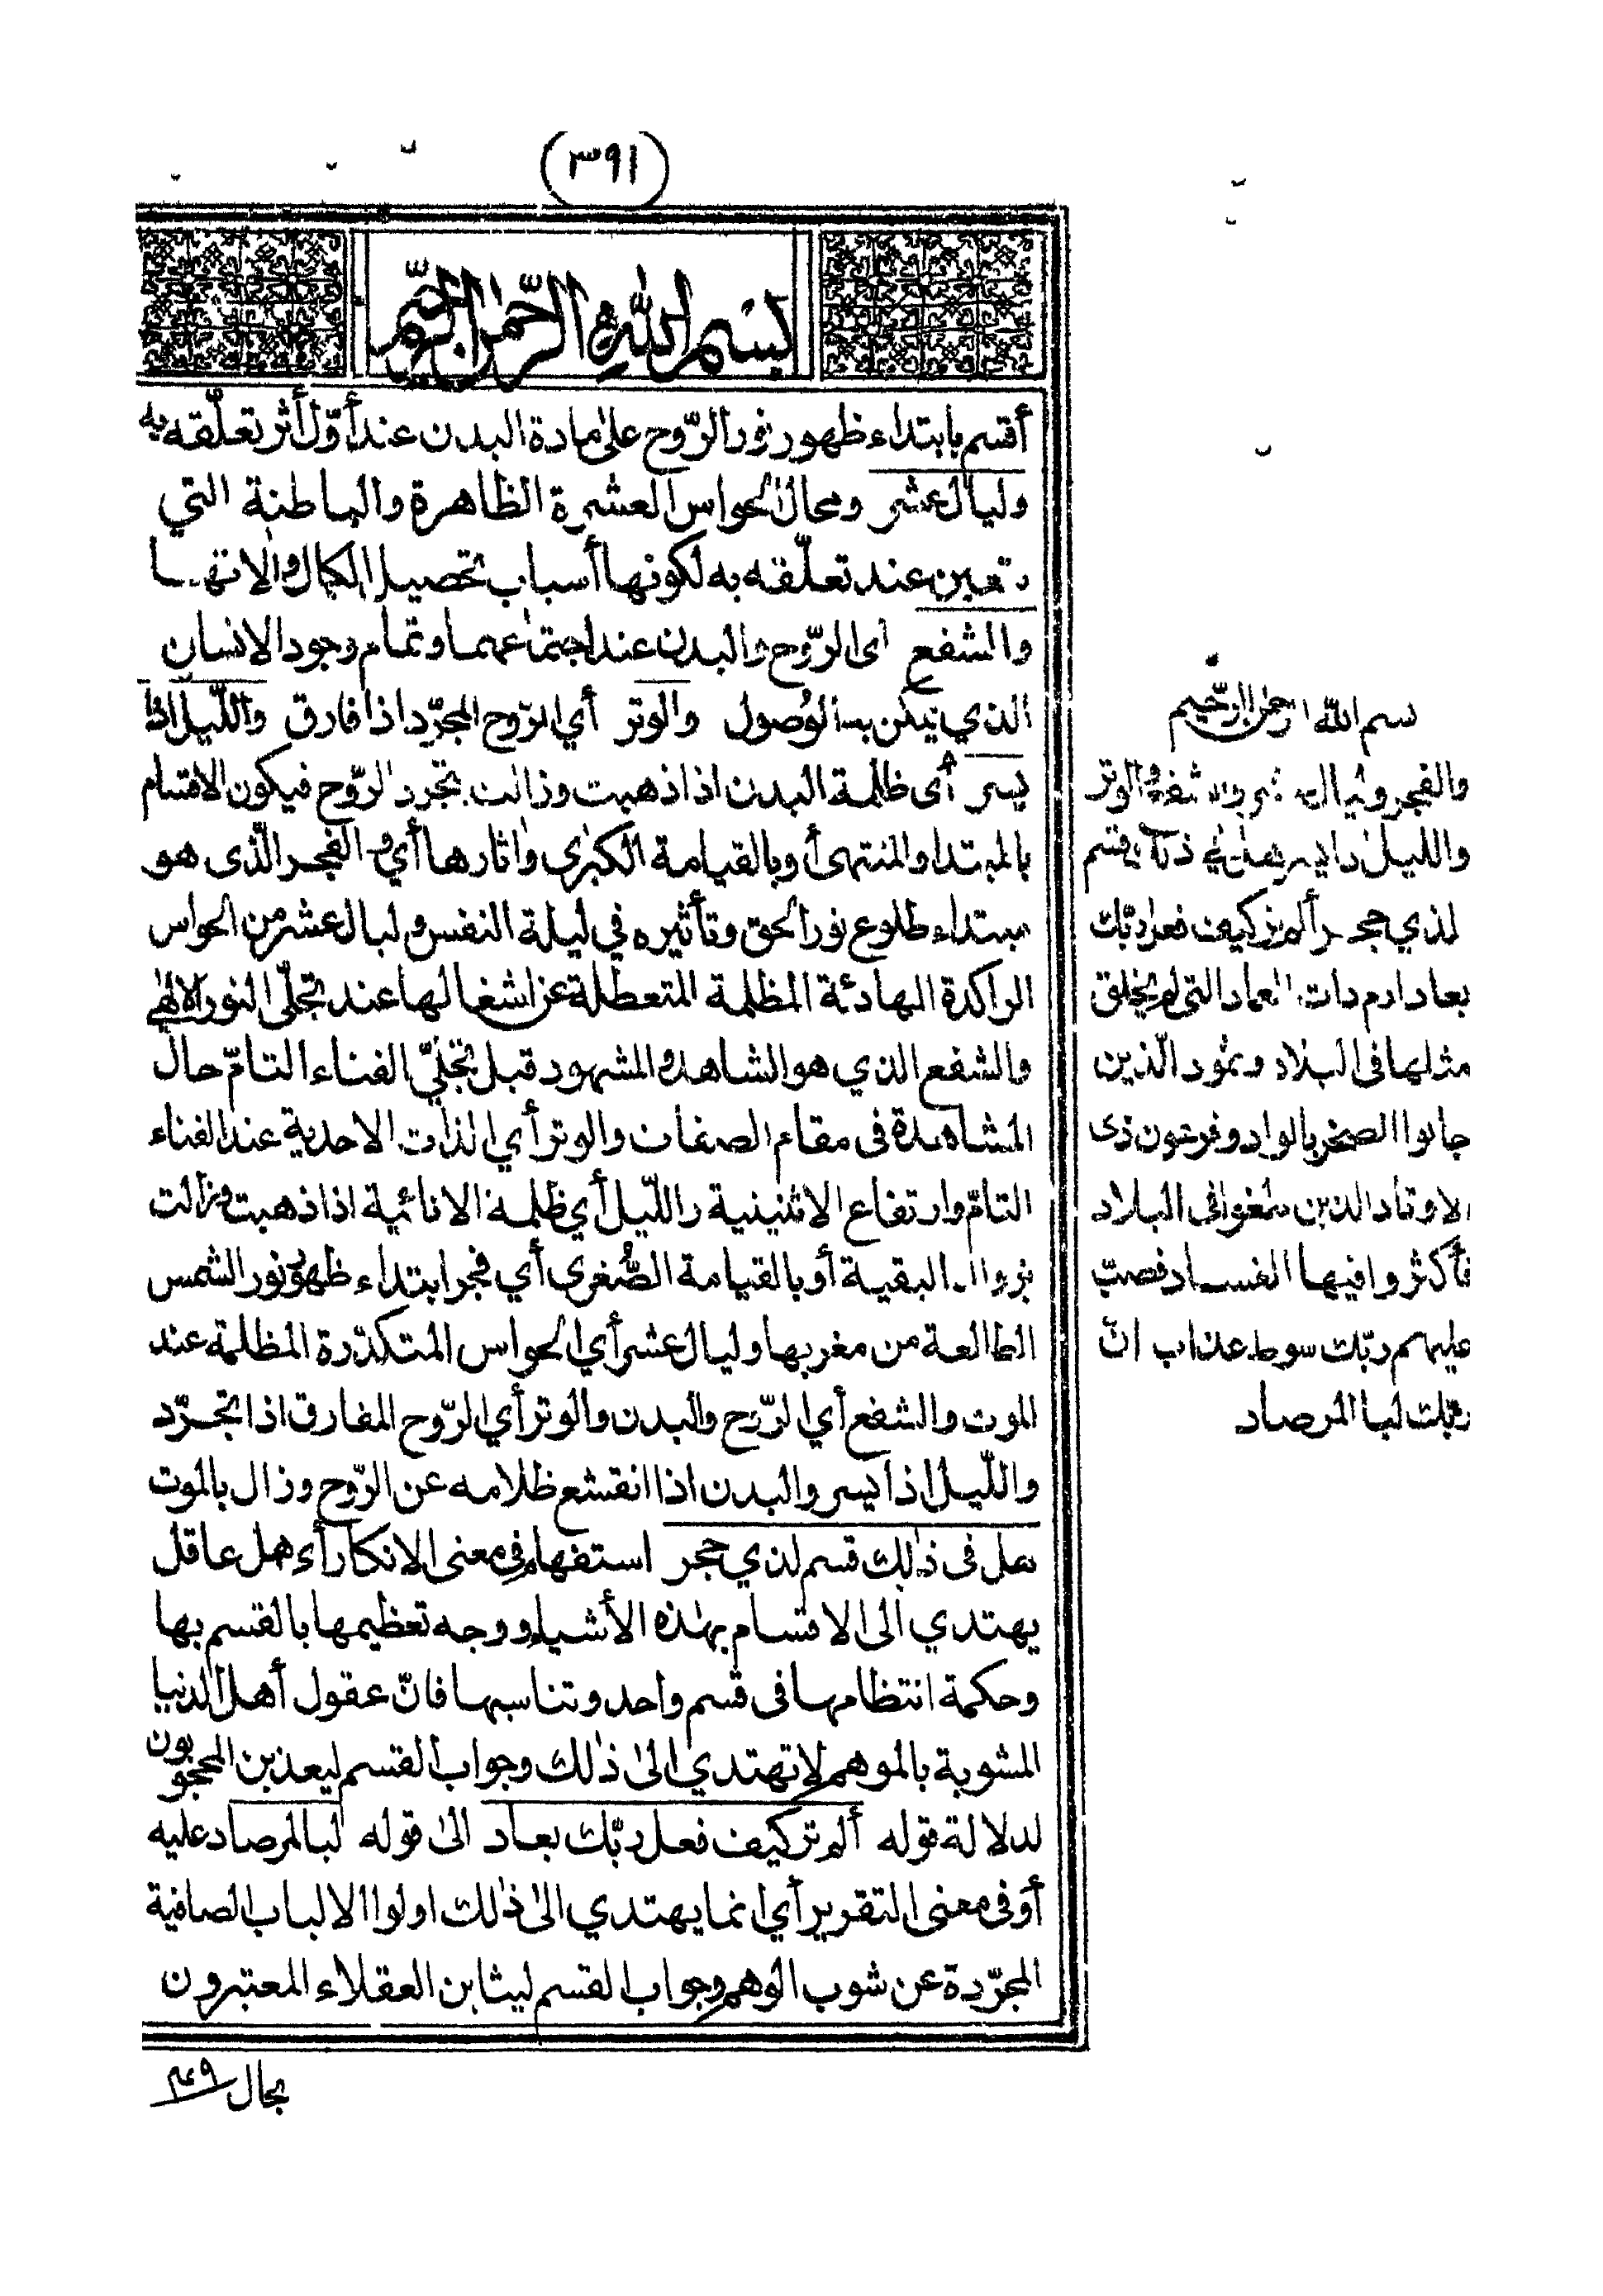 (٣٩١)
بسم الله الرحمن الرحيم
أقسم بابتداء ظهور نور الرّوح على مادة البدن عند أوّل أثر تعلّقه به
وليال عشر ومحال الحواس العشرة الظاهرة والباطنة التي
تتعين عند تعلّقه به لكونها أسباب تحصيل الكمال والاتها
والشفع اى الرّوح والبدن عند اجتماعهما وتمام وجود الانسان
الذي يمكن به الوصول والوتر أي الرّوح المجرّد اذا فارق واللّيل اذا
يسر أى ظلمة البدن اذا ذهبت وزالت بتجرد الرّوح فيكون الاقسام
بالمبتدا والمنتهى أو بالقيامة الكبرى واثارها أي والفجر الّذى هو
مبتداء طلوع نور الحق وتأثيره في ليلة النفس وليال عشر من الحواس
الراكدة الهادئة المظلمة المتعطلة عن اشغالها عند تجلّى النور الالهي
والشفع الذي هو الشاهد والمشهود قبل تجلّي الفناء التامّ حال
المشاهدة فى مقام الصفات والوتر أي الذات الاحدية عند الفناء
التامّ وارتفاع الاثنينية واللّيل أي ظلمة الانائية اذا ذهبت وزالت
بزوال البقية أو بالقيامة الصُّغرى أي فجر ابتداء ظهور نور الشمس
الطالعة من مغربها وليال عشر أي الحواس المتكدّرة المظلمة عند
الموت والشفع أي الرّوح والبدن والوتر أي الرّوح المفارق اذا تجرّد
واللّيل اذا يسر والبدن اذا انقشع ظلامه عن الرّوح وزال بالموت
هل فى ذلك قسم لذي حجر استفهام في معنى الانكار أي هل عاقل
يهتدي الى الاقسام بهذه الأشياء ووجه تعظيمها بالقسم بها
وحكمة انتظامها فى قسم واحد وتناسبها فانّ عقول أهل الدنيا
المشوبة بالموهم لا تهتدي الى ذلك وجواب القسم ليعذبن المحجوبون
لدلالة قوله ألم تر كيف فعل ربّك بعاد الى قوله لبالمرصاد عليه
أو فى معنى التقرير أي انما يهتدي الى ذلك اولوا الالباب الصافية
المجرّدة عن شوب الوهم وجواب القسم ليثابن العقلاء المعتبرون
بسم الله الرحمن الرّحيم
والفجر وليال عشر والشفع والوتر
والليل اذا يسر هل في ذلك قسم
لذي حجر ألم تر كيف فعل ربّك
بعاد ارم ذات العماد التى لم يخلق
مثلها فى البلاد وثمود الّذين
جابوا الصخر بالواد وفرعون ذى
الاوتاد الذين طغوا فى البلاد
فأكثروا فيها الفساد فصبّ
عليهم ربّك سوط عذاب انّ
ربّك لبالمرصاد
بحال